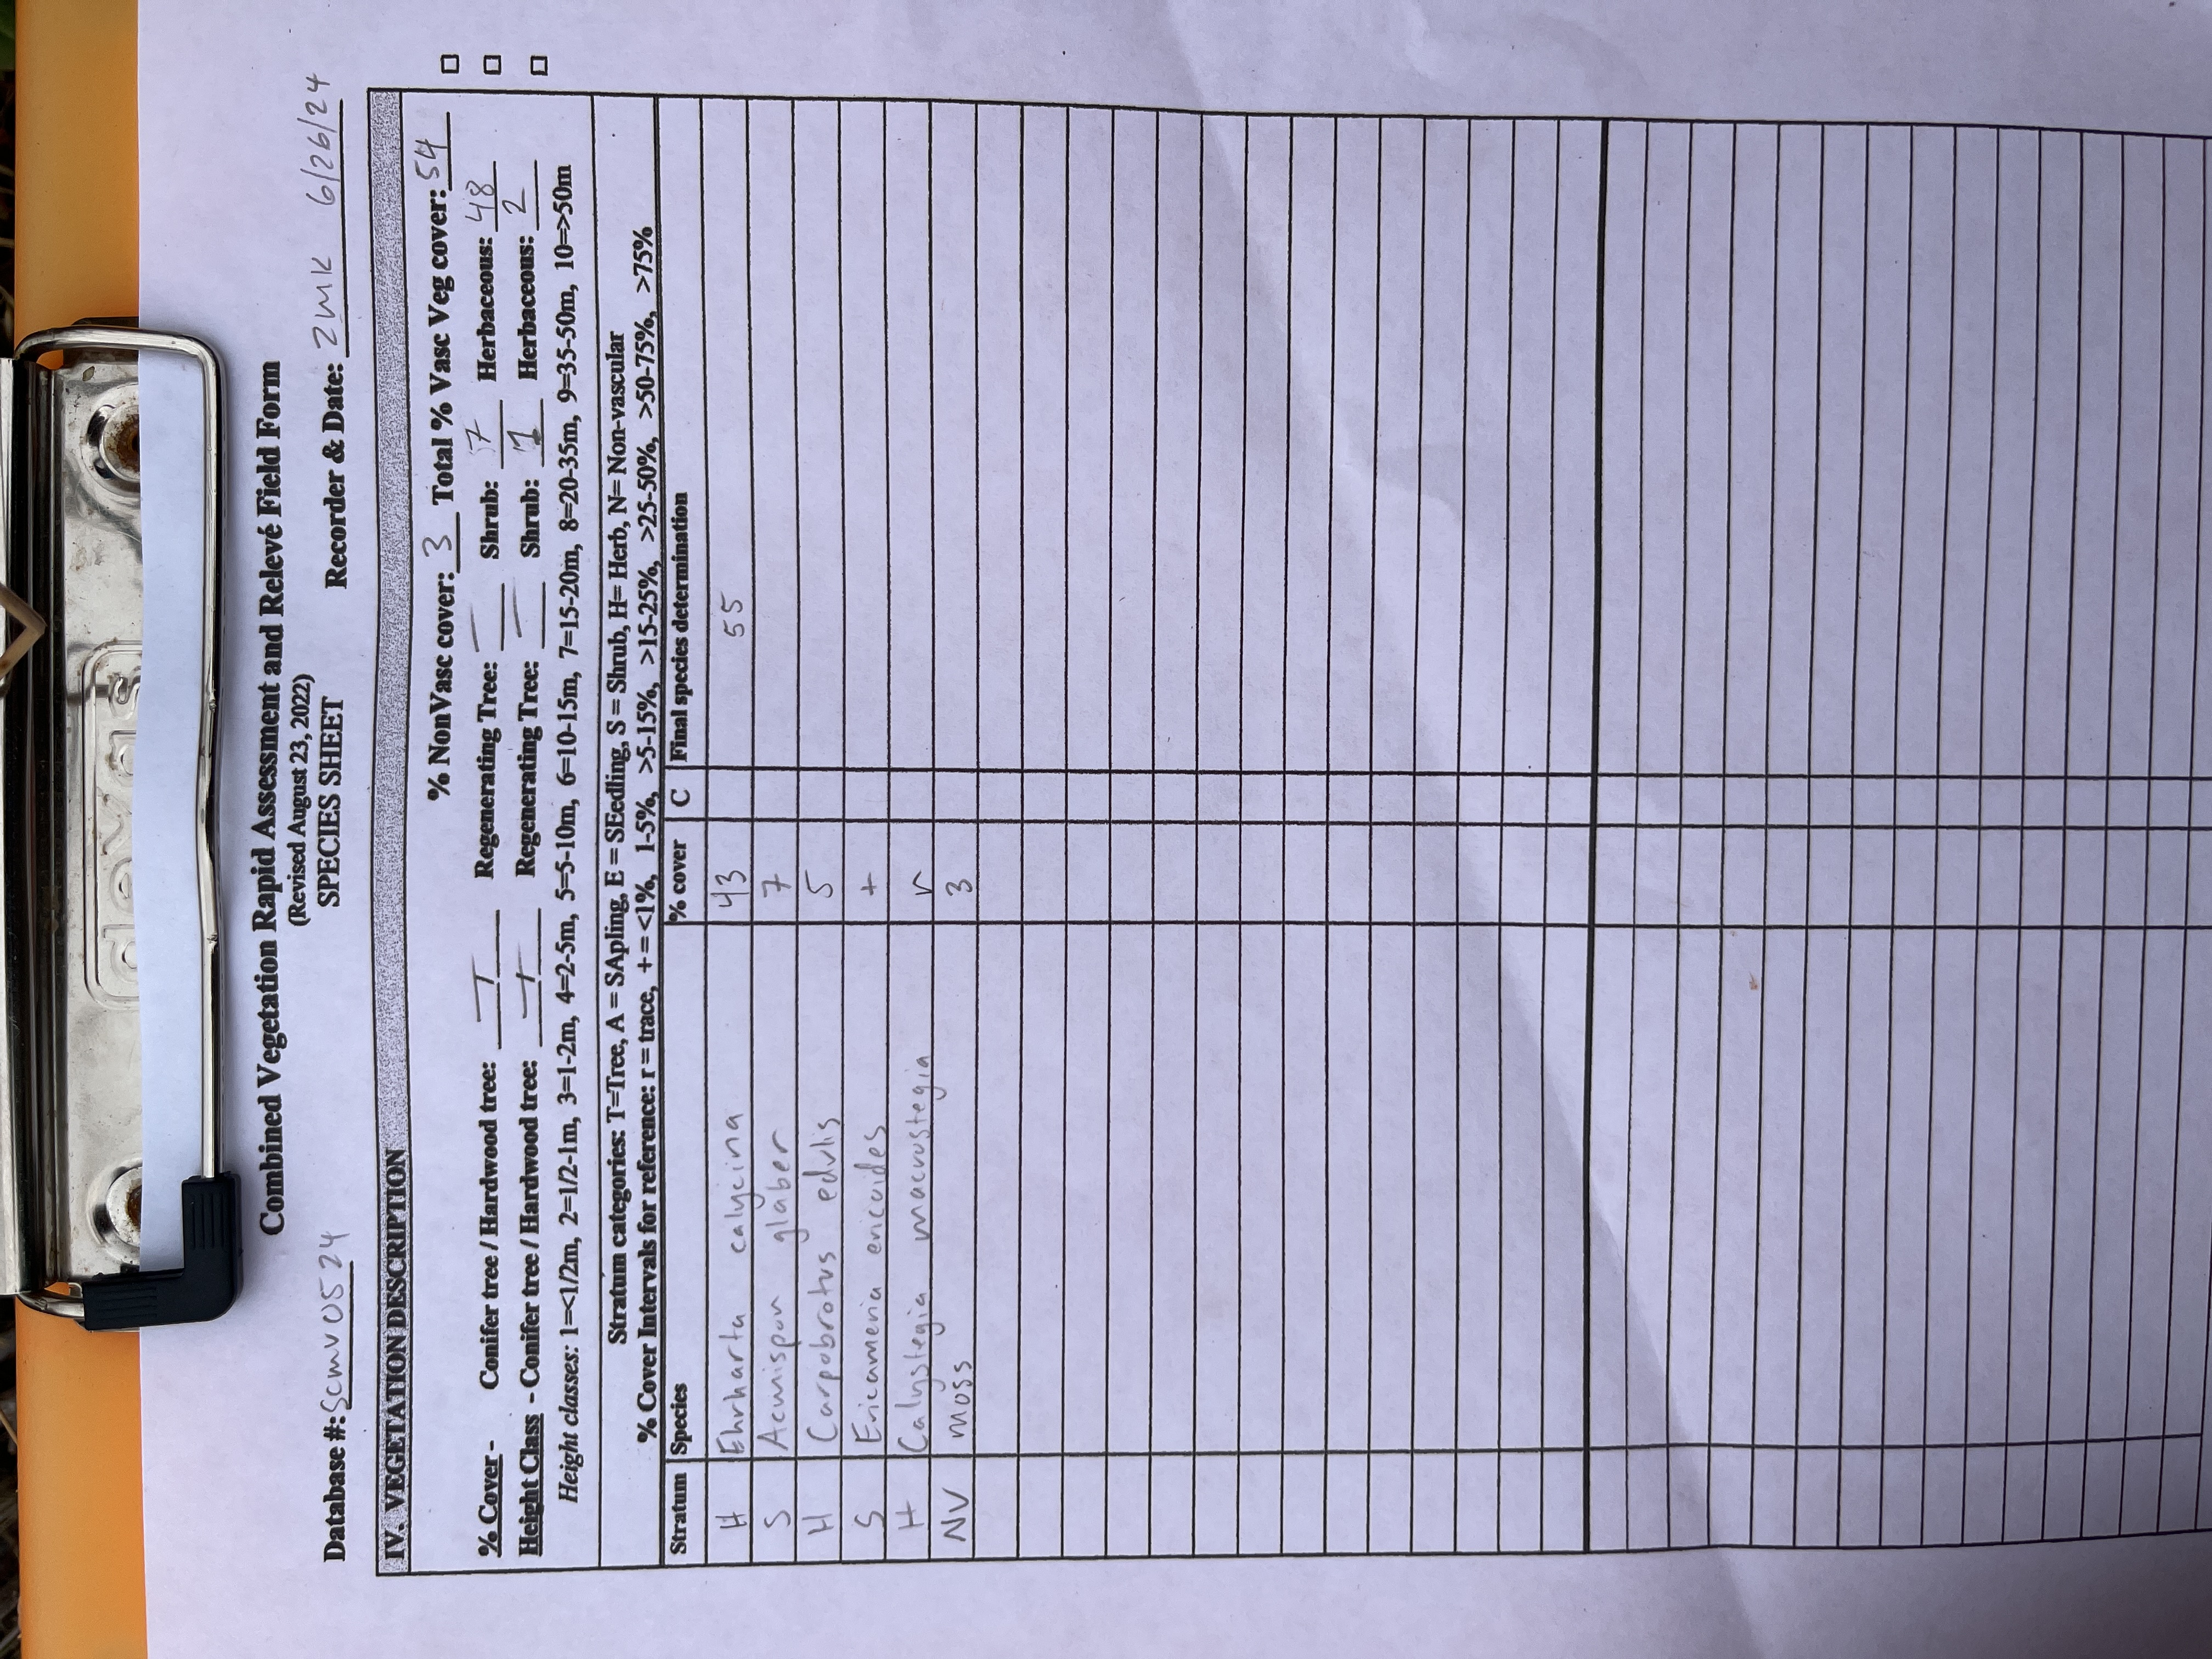 Combined Vegetation Rapid Assessment and Relevé Field Form
(Revised August 23, 2022)
SPECIES SHEET
Database #: SCMV0524 Recorder & Date: ZMK 6/26/24
IV. VEGETATION DESCRIPTION
% NonVasc cover: 3 Total % Vasc Veg cover: 54
% Cover - Conifer tree / Hardwood tree: — / — Regenerating Tree: — Shrub: 7 Herbaceous: 48
Height Class - Conifer tree / Hardwood tree: — / — Regenerating Tree: — Shrub: 1 Herbaceous: 2
Height classes: 1=<1/2m, 2=1/2-1m, 3=1-2m, 4=2-5m, 5=5-10m, 6=10-15m, 7=15-20m, 8=20-35m, 9=35-50m, 10=>50m
Stratum categories: T=Tree, A = SApling, E = SEedling, S = Shrub, H= Herb, N= Non-vascular
% Cover Intervals for reference: r = trace, + = <1%, 1-5%, >5-15%, >15-25%, >25-50%, >50-75%, >75%
Stratum Species % cover C Final species determination
H Ehrharta calycina 43 55
S Acmispon glaber 7
H Carpobrotus edulis 5
S Ericameria ericoides +
H Calystegia macrostegia r
NV moss 3